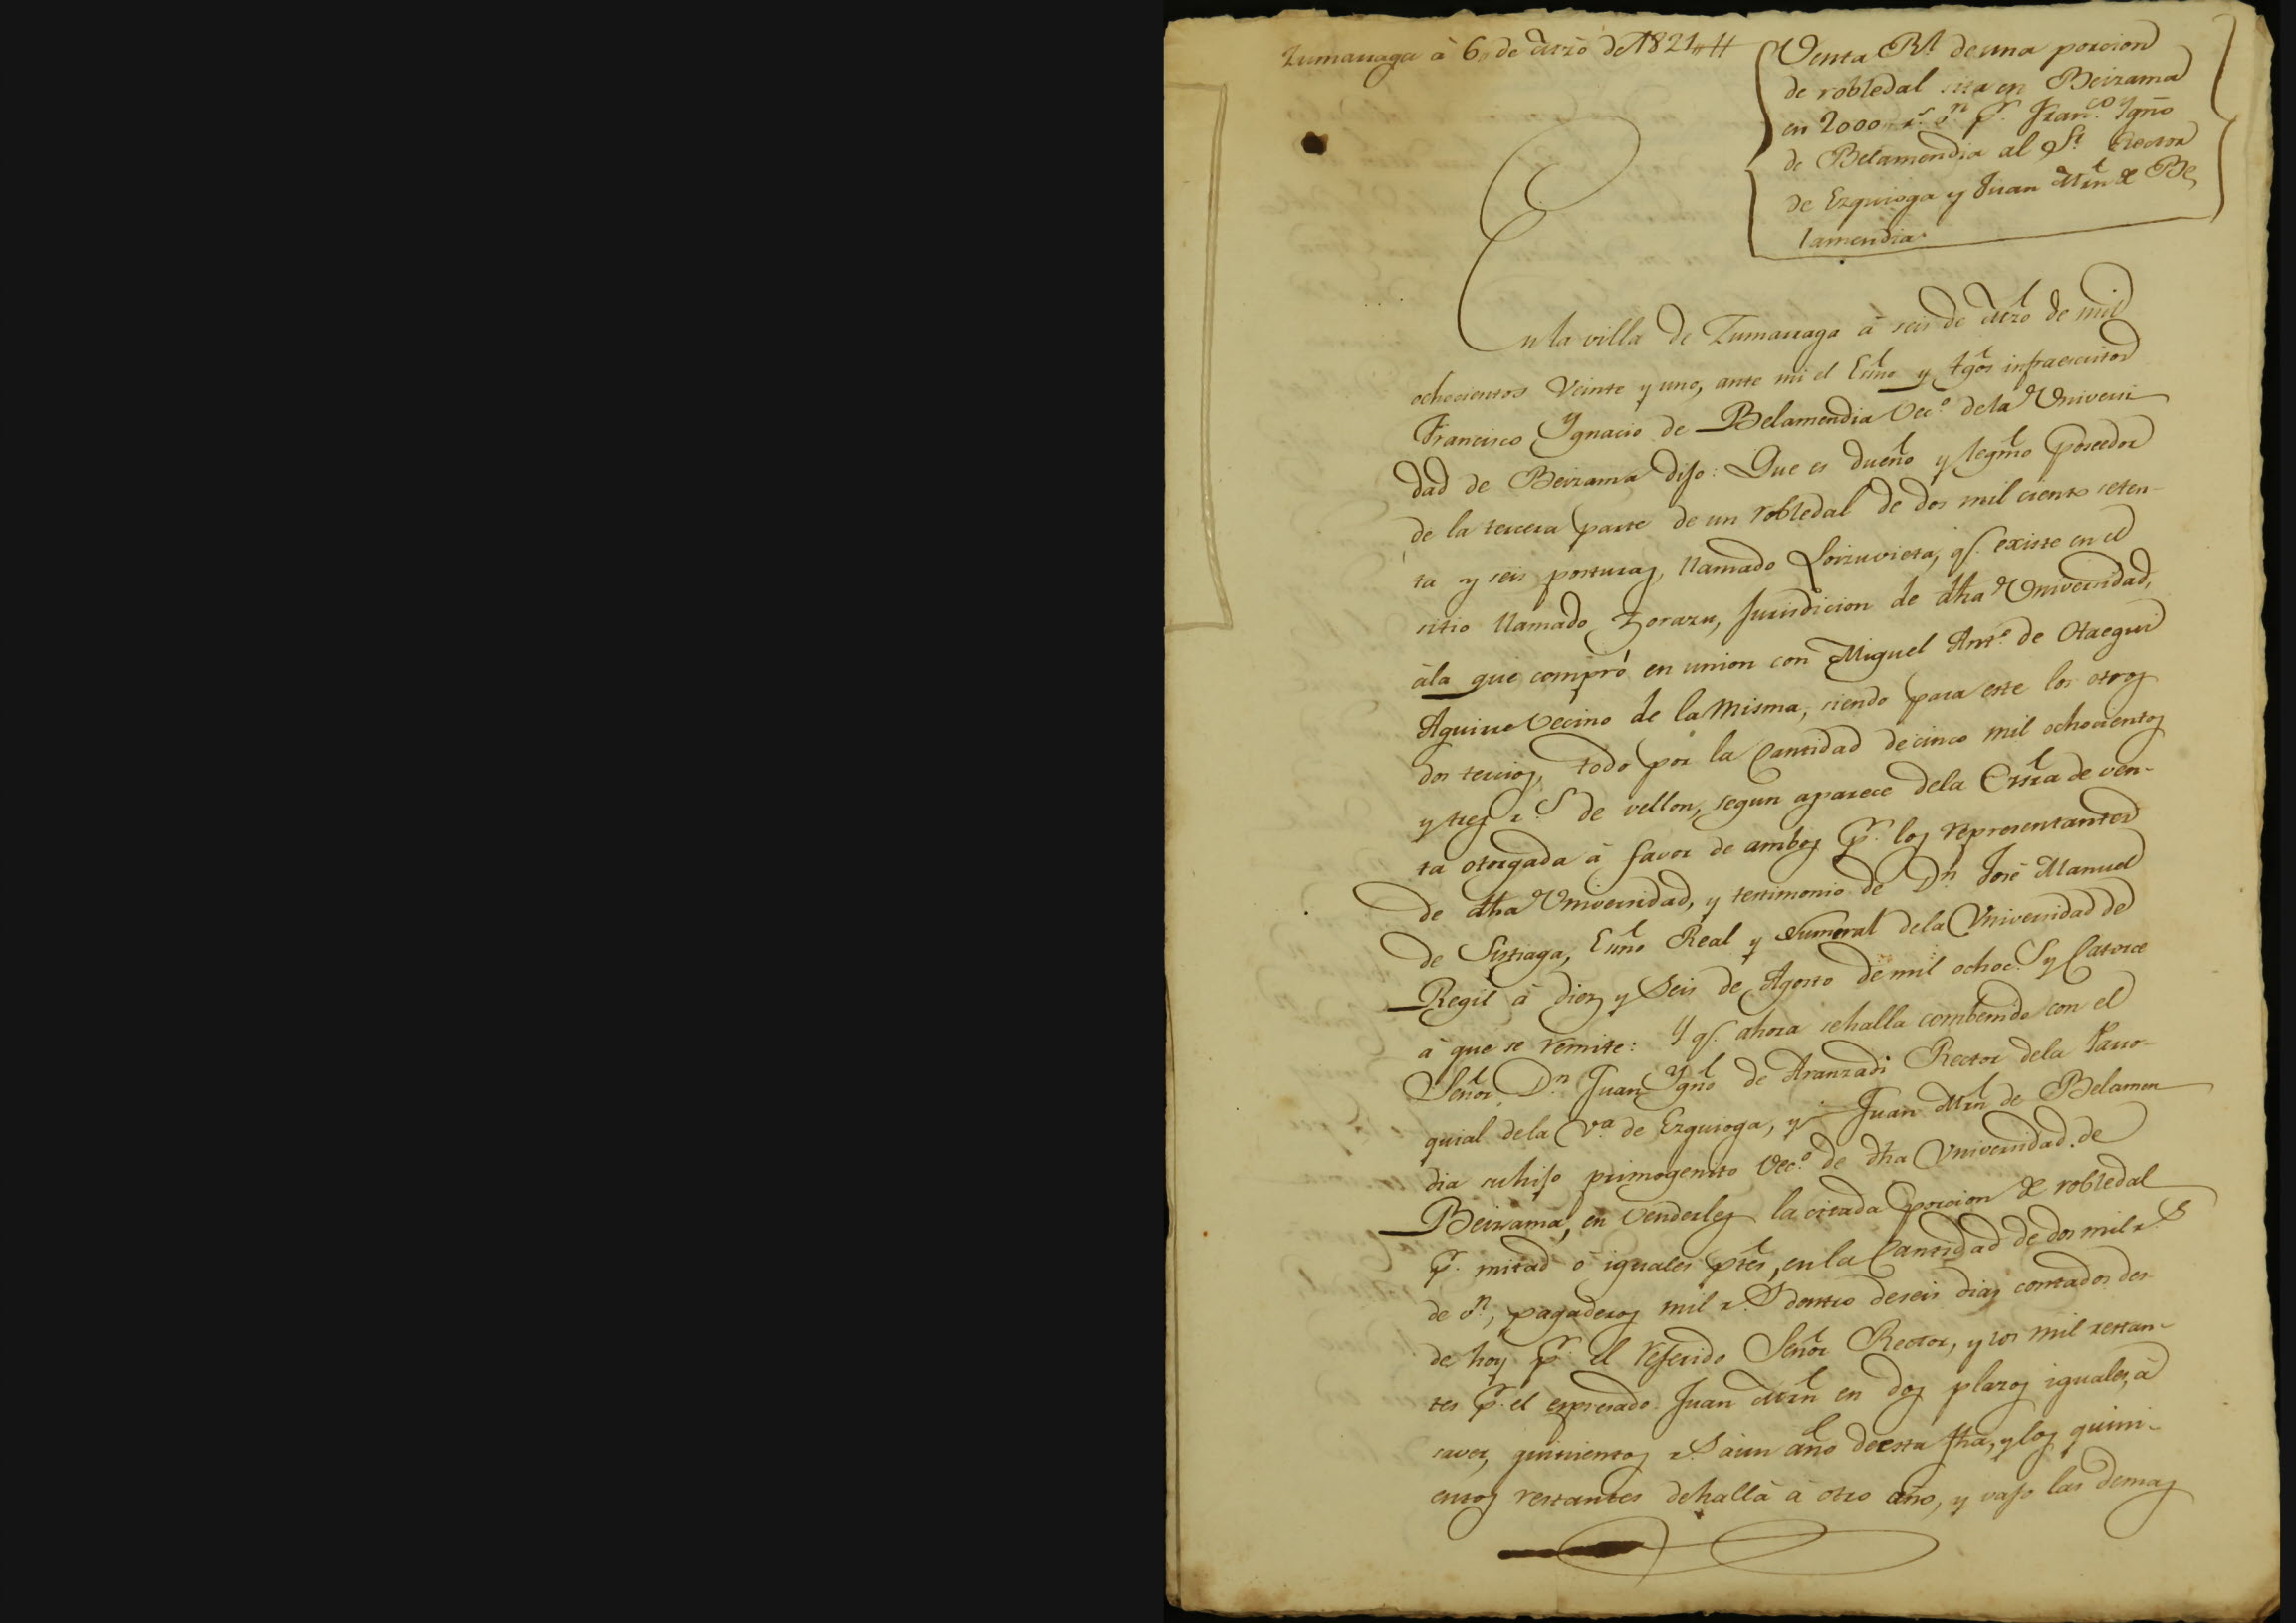 Zumarraga à 6,, de Mrzo de 1821,,
Venta Rl. de una porcion
de robledal sita en Beizama
en 2000 rs. vn. pr. Franco. Ygno
de Belamendia al Sr. Rector
de Ezquioga y Juan Mrn de Be
lamendia.
En la villa de Zumarraga à seis de Mrzo de mil
ochocientos Veinte y uno, ante mi el Esno y tgos infraescritos
Francisco Ygnacio de Belamendia Veco. de la Universi
dad de Beizama dijo: Que es dueño y legmo poseedor
de la tercera parte de un robledal de dos mil ciento seten-
ta y seis posturas, llamado Loizuvieta, q. existe en el
sitio llamado Zorazu, Jurisdicion de dha Universidad,
àla que comprò en union con Miguel Anto. de Otaegui
Aguirre Vecino de la Misma, siendo para este los otros
dos tercios, todo por la Cantidad de cinco mil ochocientos
y tres rs. de vellon, segun aparece dela Escra de ven-
ta otorgada à favor de ambos pr. los representantes
de dha Universidad, y testimonio de Dn. José Manuel
de Sistiaga, Esno Real y Numeral dela Universidad de
Regil à diez y Seis de Agosto de mil ochocs. y Catorce
à que se remite: Y q. ahora se halla combenido con el
Señor Dn. Juan Ygno de Aranzadi Rector dela Parro-
quial dela Va. de Ezquioga, y Juan Mrn de Belamen
dia su hijo primogenito Veco. de dha Universidad de
Beizama, en Venderles la citada porcion de robledal
pr. mitad ò iguales ptes, en la Cantidad de dos mil rs.
de vn., pagaderos mil rs. dentro de seis dias contados des
de hoy pr. el referido Señor Rector, y los mil restan-
tes pr. el expresado Juan Mrn en dos plazos iguales, à
saver, quinientos rs. à un año de esta fha, y los quini-
entos restantes dehallà à otro año, y vajo las demas